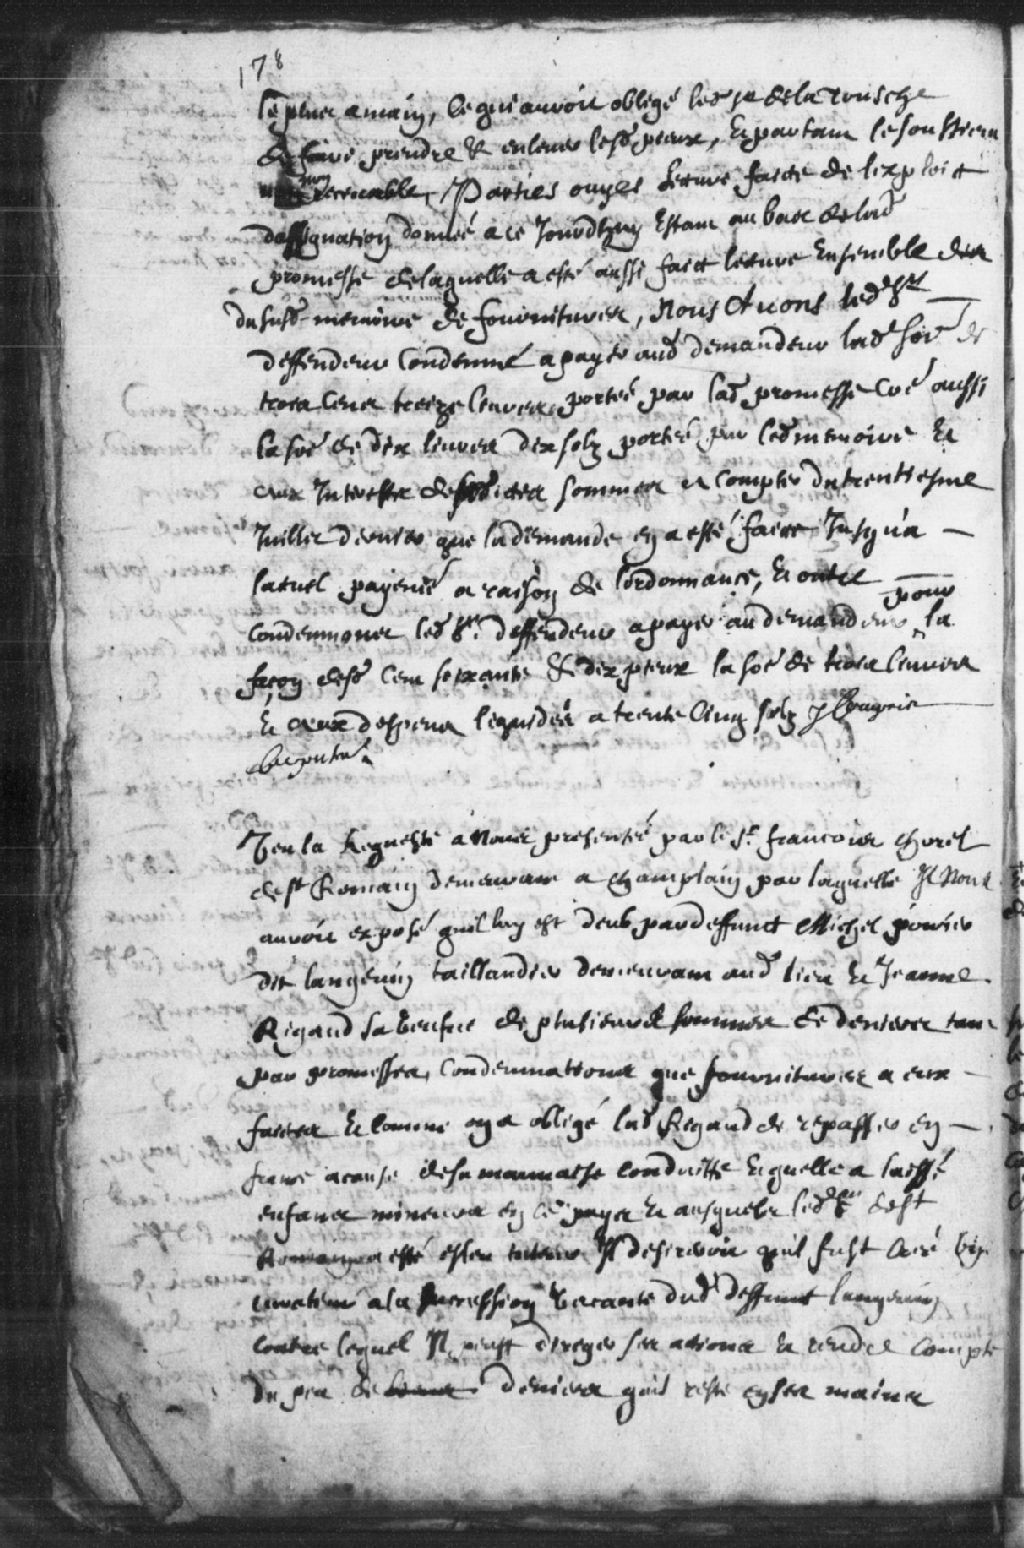 178
le plus a main, ce qui auroit obligé led. sr de la Touche
de faire prendre & enleuer lesd. pieux, Et partant le soustient
non receuable, Parties ouyes lecture faicte de lexploict
dassignation donné a ce Jourdhuy Estant au bas de lad.
promesse de laquelle a esté aussi faict lecture Ensemble des
du susd. memoire de fournitures, Nous Auons led. Sr
deffendeur Condemné a payer aud. demandeur lad. soe. de
trois Cens treize liures portée par lad. promesse Coe. aussi
la soe. de dix liures dix solz portée par led. memoire Et
aux Interestz desd. sommes a compter du trentiesme
Juillet dernier que la demande en a esté faite Jusqu'a
lactuel payemt. a raison de lordonnance, Et outre
condemnons led. Sr. deffendeur a payer au demandeur pour la
façon desd. Cent soixante & dix pieux la soe. de trois liures
Et aux despens liquidés a trente Cinq solz

Veu la Requeste a Nous presentée par le Sr. francois Chorel
de St Romain demeurant a Champlain par laquelle Il Nous
auroit exposé quil luy est deub par deffunct Michel poirier
dit langeuin taillandier demeurant aud. lieu Et Jeanne
Rigaud sa Veufue de plusieurs sommes de deniers tant
par promesses, Condemnations que fournitures a eux
faites Et comme on a obligé lad. Rigaud de repasser en
france a cause de sa mauuaise conduitte Et quelle a laissé
enfans mineurs en ce pays Et ausquels led. Sr de St
Romain a esté esleu tuteur Il desireroit quil fust Créé Vn
curateur a la succession Vacante dud. deffunct langeuin
contre lequel Il peust diriger ses actions Et rendre compte
du peu de deniers quil reste en ses mains